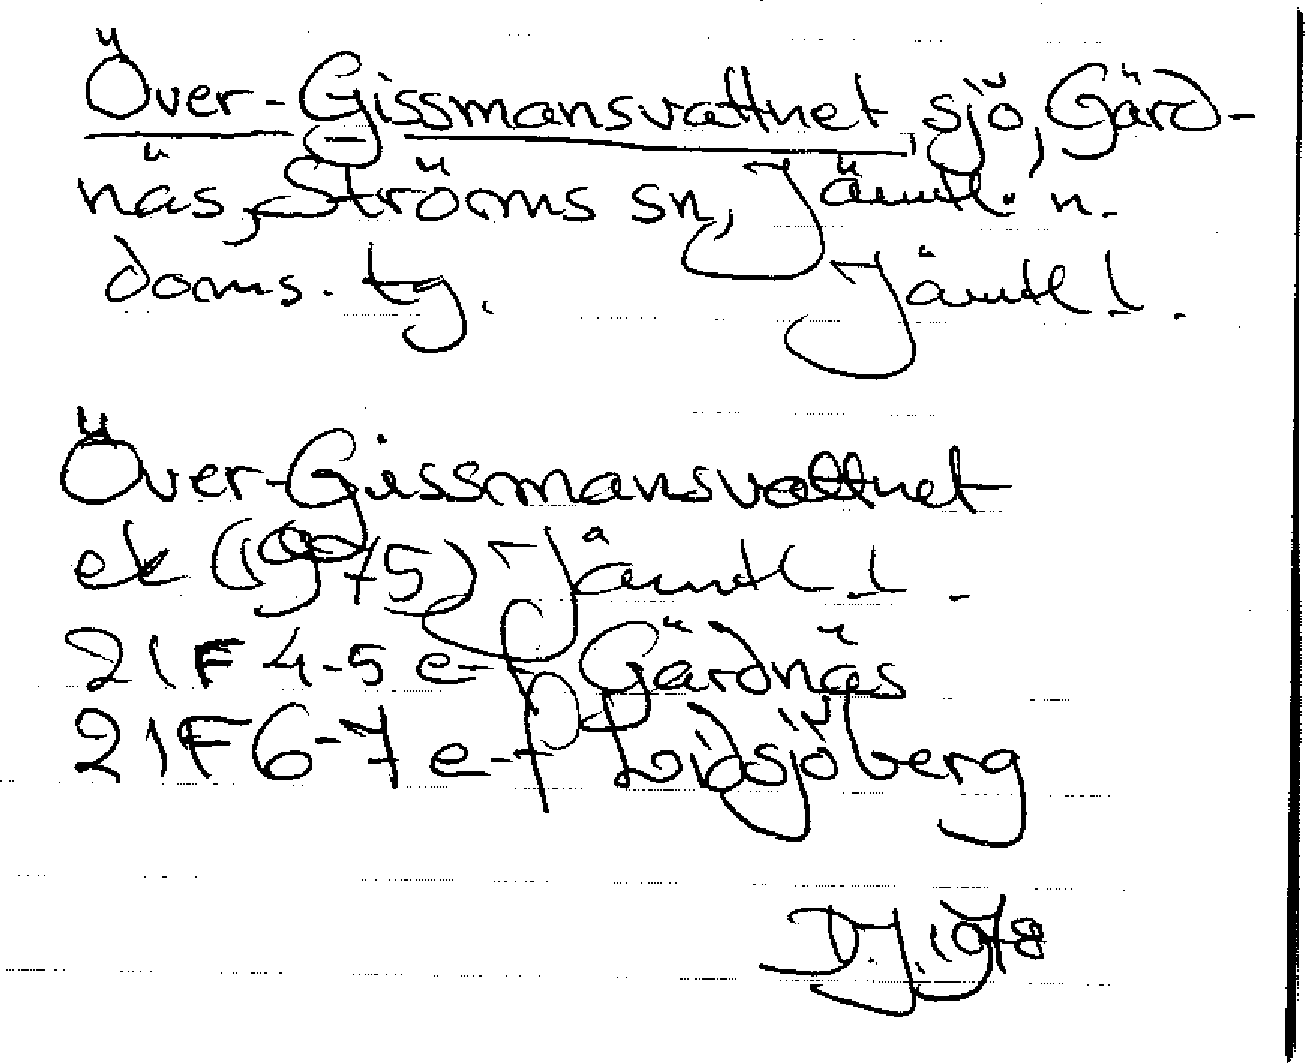 Över-Gissmansvattnet, sjö, Gärd-
näs, Ströms sn, Jämtl. n.
doms. tg. Jämtl l.
Över-Gissmansvattnet
ek (1975) Jämtl l.
21F 4-5 e-f Gärdnäs
21F 6-7 e-f Lidsjöberg
D.J. 1978